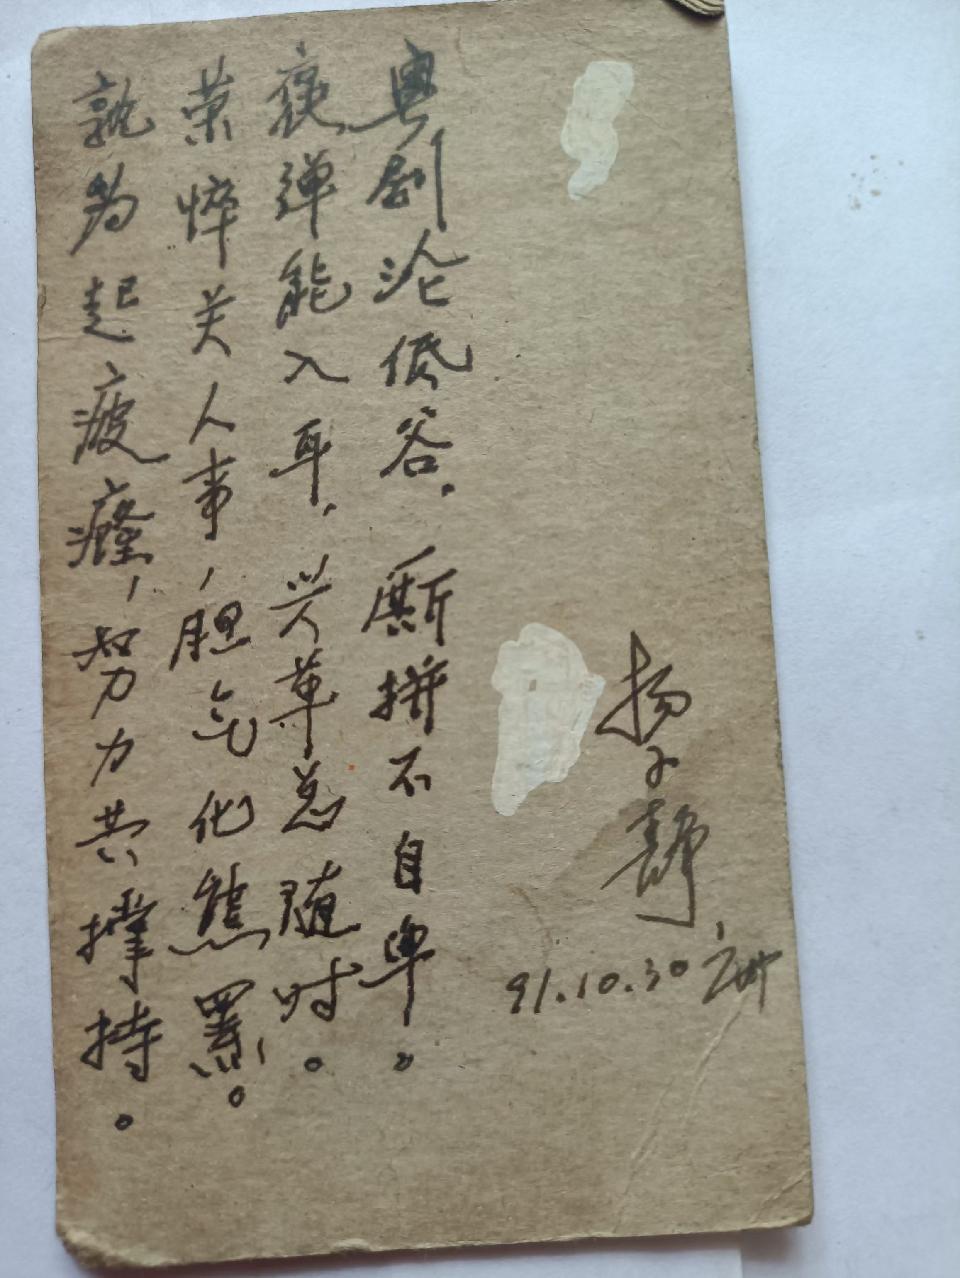 粤剧沦低谷，厮拼不自卑。
褒弹能入耳，兴革总随时。
荣悴关人事，胆气化熊罴。
孰为起疲癃，努力共撑持。
杨子静
91.10.30